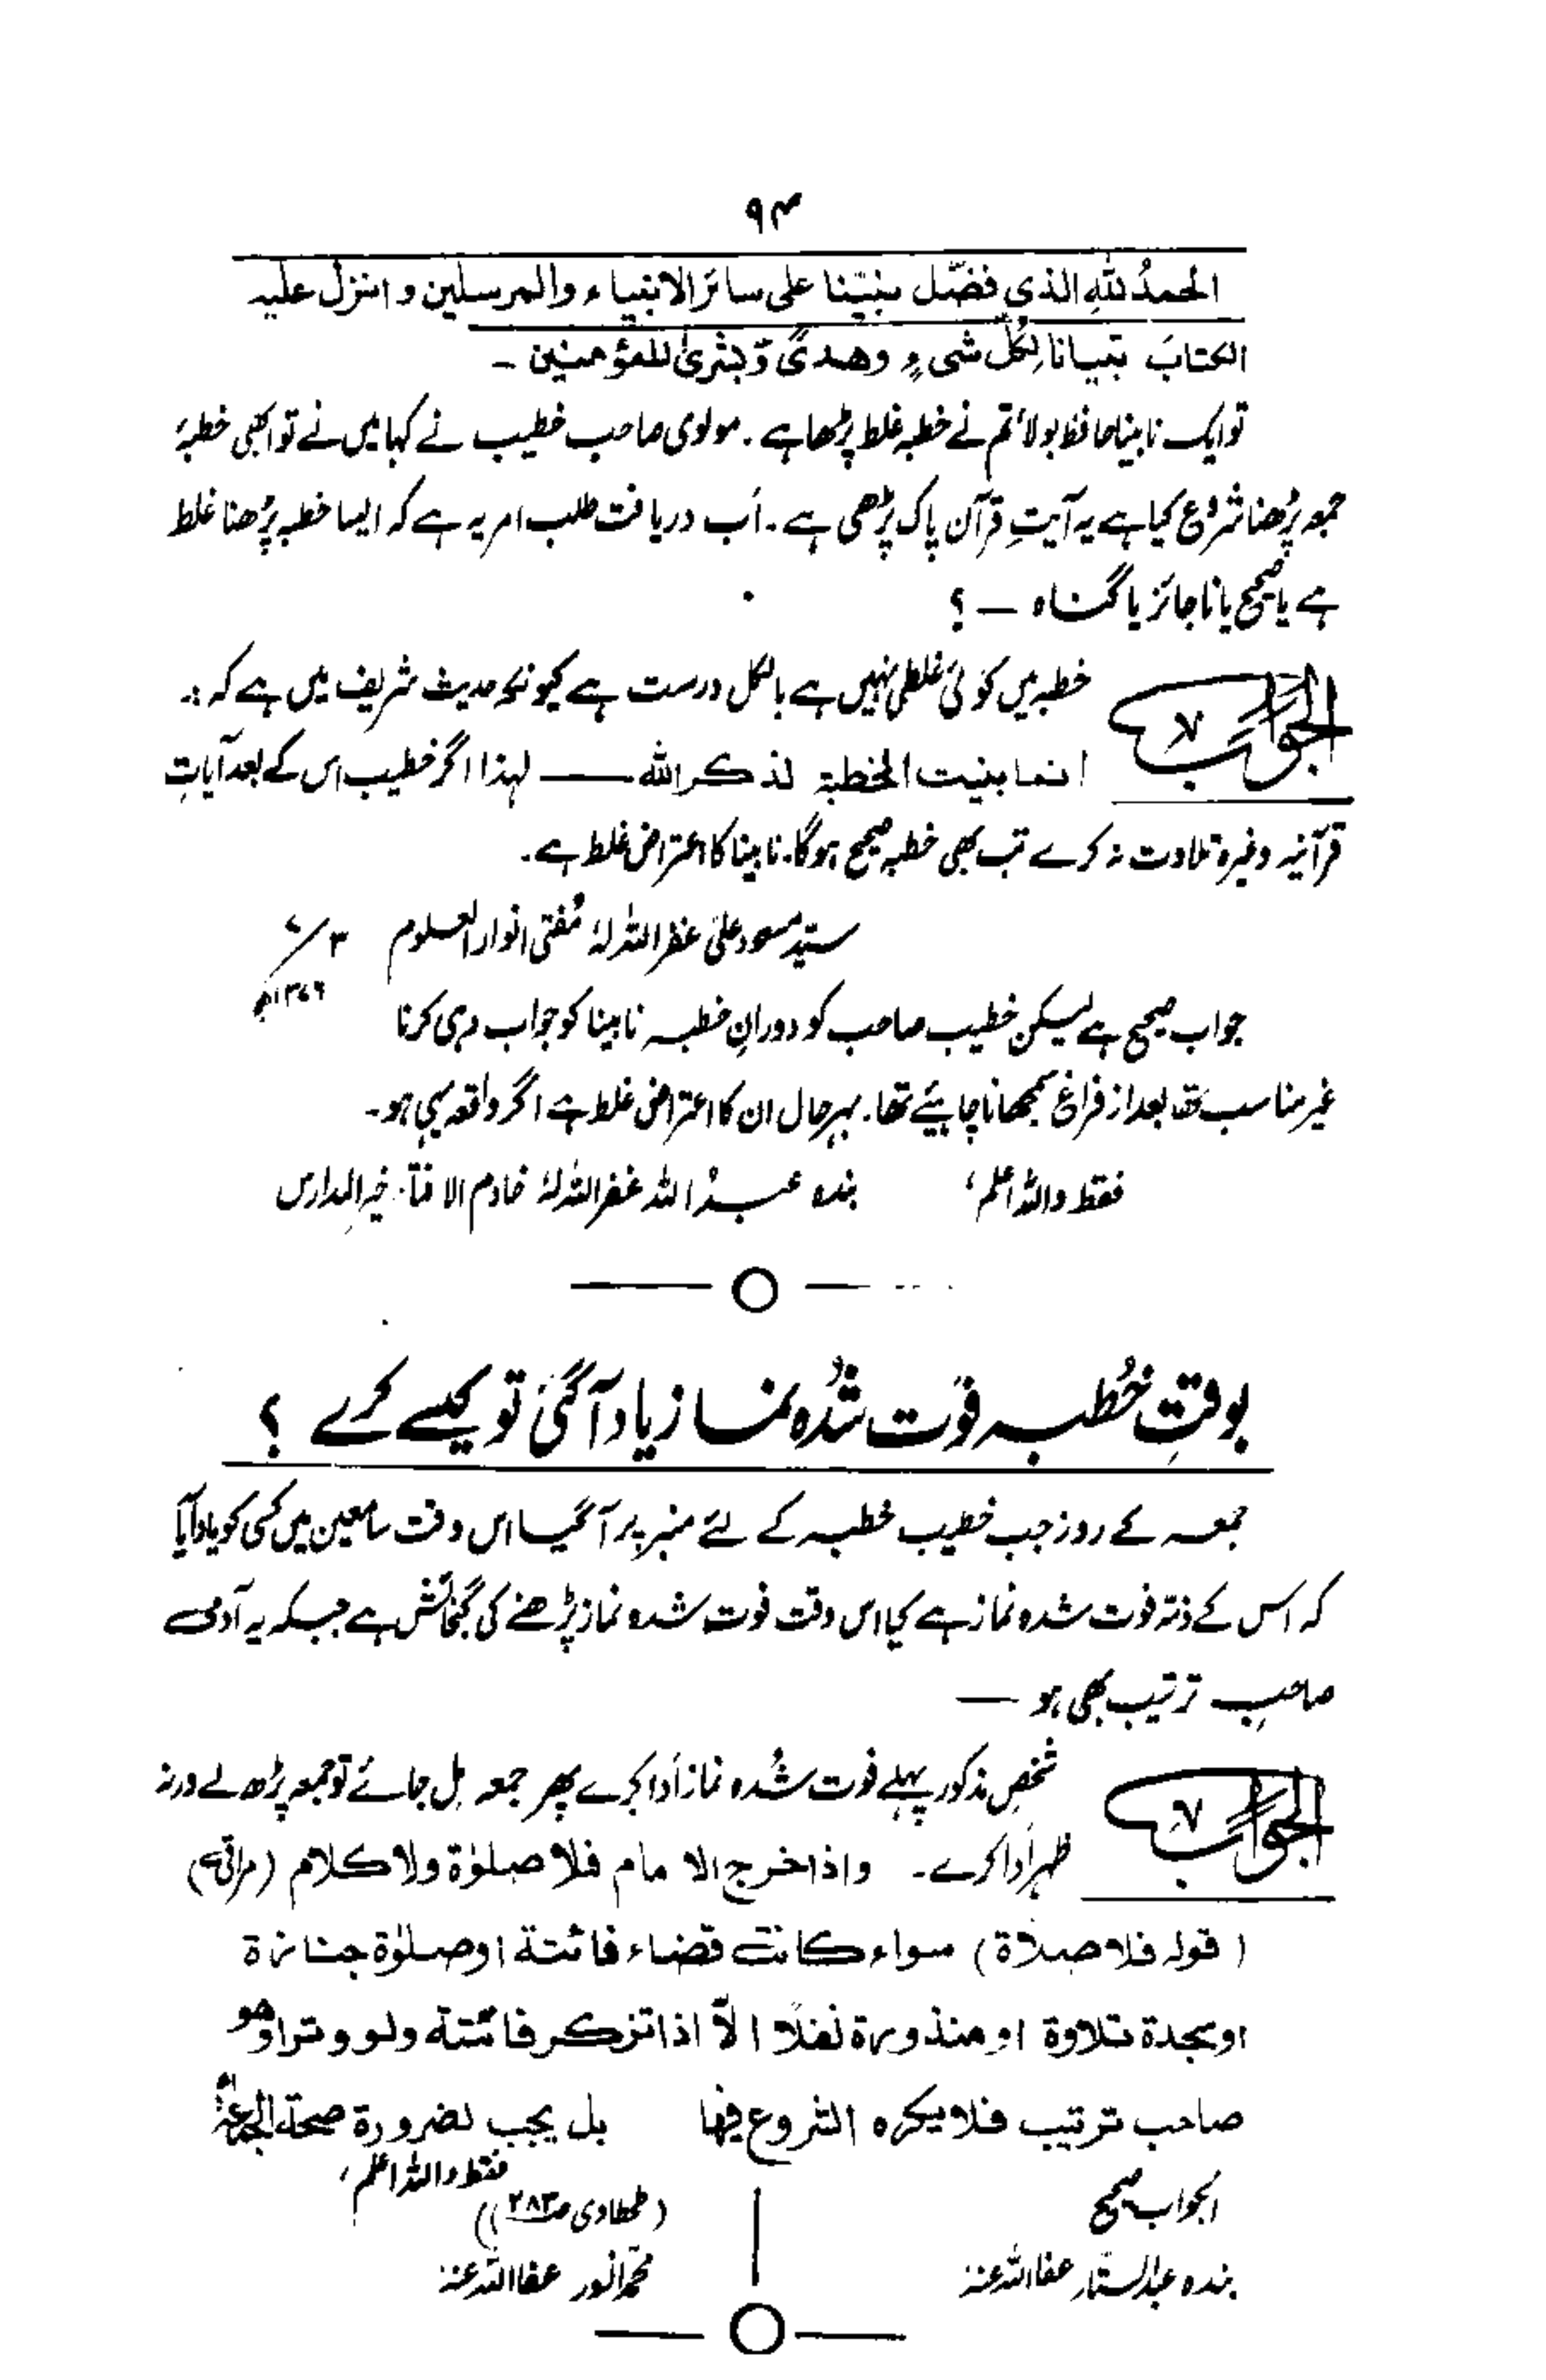 ۹۴
الحمدُ للّٰهِ الذي فضّل نبيّنا على سائر الانبياء والمرسلين و انزل عليه
الكتابَ تبيانا لِكُلّ شىءٍ وهدىً وّ بشرىٰ للمؤمنين ۔
تو ایک نابینا حافظ بولا تم نے خطبہ غلط پڑھا ہے ۔ مولوی صاحب خطیب نے کہا میں نے تو ابھی خطبۂ
جمعہ پڑھنا شروع کیا ہے یہ آیتِ قرآن پاک پڑھی ہے ۔ اَب دریافت طلب امر یہ ہے کہ ایسا خطبہ پڑھنا غلط
ہے یا صحیح یا ناجائز یا گناہ — ؟
الجواب خطبہ میں کوئی غلطی نہیں ہے بالکل درست ہے کیونکہ حدیث شریف میں ہے کہ :۔
انما بنيت الخطبة لذكر الله —— لہٰذا اگر خطیب اس کے بعد آیاتِ
قرآنیہ وغیرہ تلاوت نہ کرے تب بھی خطبہ صحیح ہوگا۔ نابینا کا اعتراض غلط ہے ۔
سیّد مسعود علی غفر اللہ لہٗ مُفتی انوار العلوم
جواب صحیح ہے لیکن خطیب صاحب کو دورانِ خطبہ نابینا کو جواب دہی کرنا
غیر مناسب تھا بعد از فراغ سمجھانا چاہیئے تھا۔ بہرحال ان کا اعتراض غلط ہے اگر واقعہ یہی ہو۔
فقط واللہ اعلم، بندہ عبدُ اللہ غفر اللہ لہٗ خادم الافتاء خیر المدارس
بوقتِ خُطبہ فوت شُدہ نماز یاد آگئی تو کیسے کرے ؟
جمعہ کے روز جب خطیب خطبہ کے لئے منبر پر آگیا اس وقت سامعین میں کسی کو یاد آیا
کہ اس کے ذمّہ فوت شدہ نماز ہے کیا اس وقت فوت شدہ نماز پڑھنے کی گنجائش ہے جبکہ یہ آدمی
صاحبِ ترتیب بھی ہو —
الجواب شخصِ مذکور پہلے فوت شُدہ نماز اَدا کرے پھر جمعہ مِل جائے تو جمعہ پڑھ لے ورنہ
ظہر اَدا کرے ۔ واذا خرج الامام فلا صلوٰة ولا كلام (مراقی)
( قوله فلا صلاة ) سواء كانت قضاء فائتة او صلوٰة جنازة
او سجدة تلاوة او منذورة نفلًا الّا اذا تزكر فائتة ولو وترا وهو
صاحب ترتيب فلا يكره الشروع فيها بل يجب لضرورة صحة الجمعة اھ
فقط واللہ اعلم،
(طحطاوی ص۲۸۳)
الجواب صحیح
بندہ عبدالستار عفا اللہ عنہٗ
محمد انور عفا اللہ عنہٗ